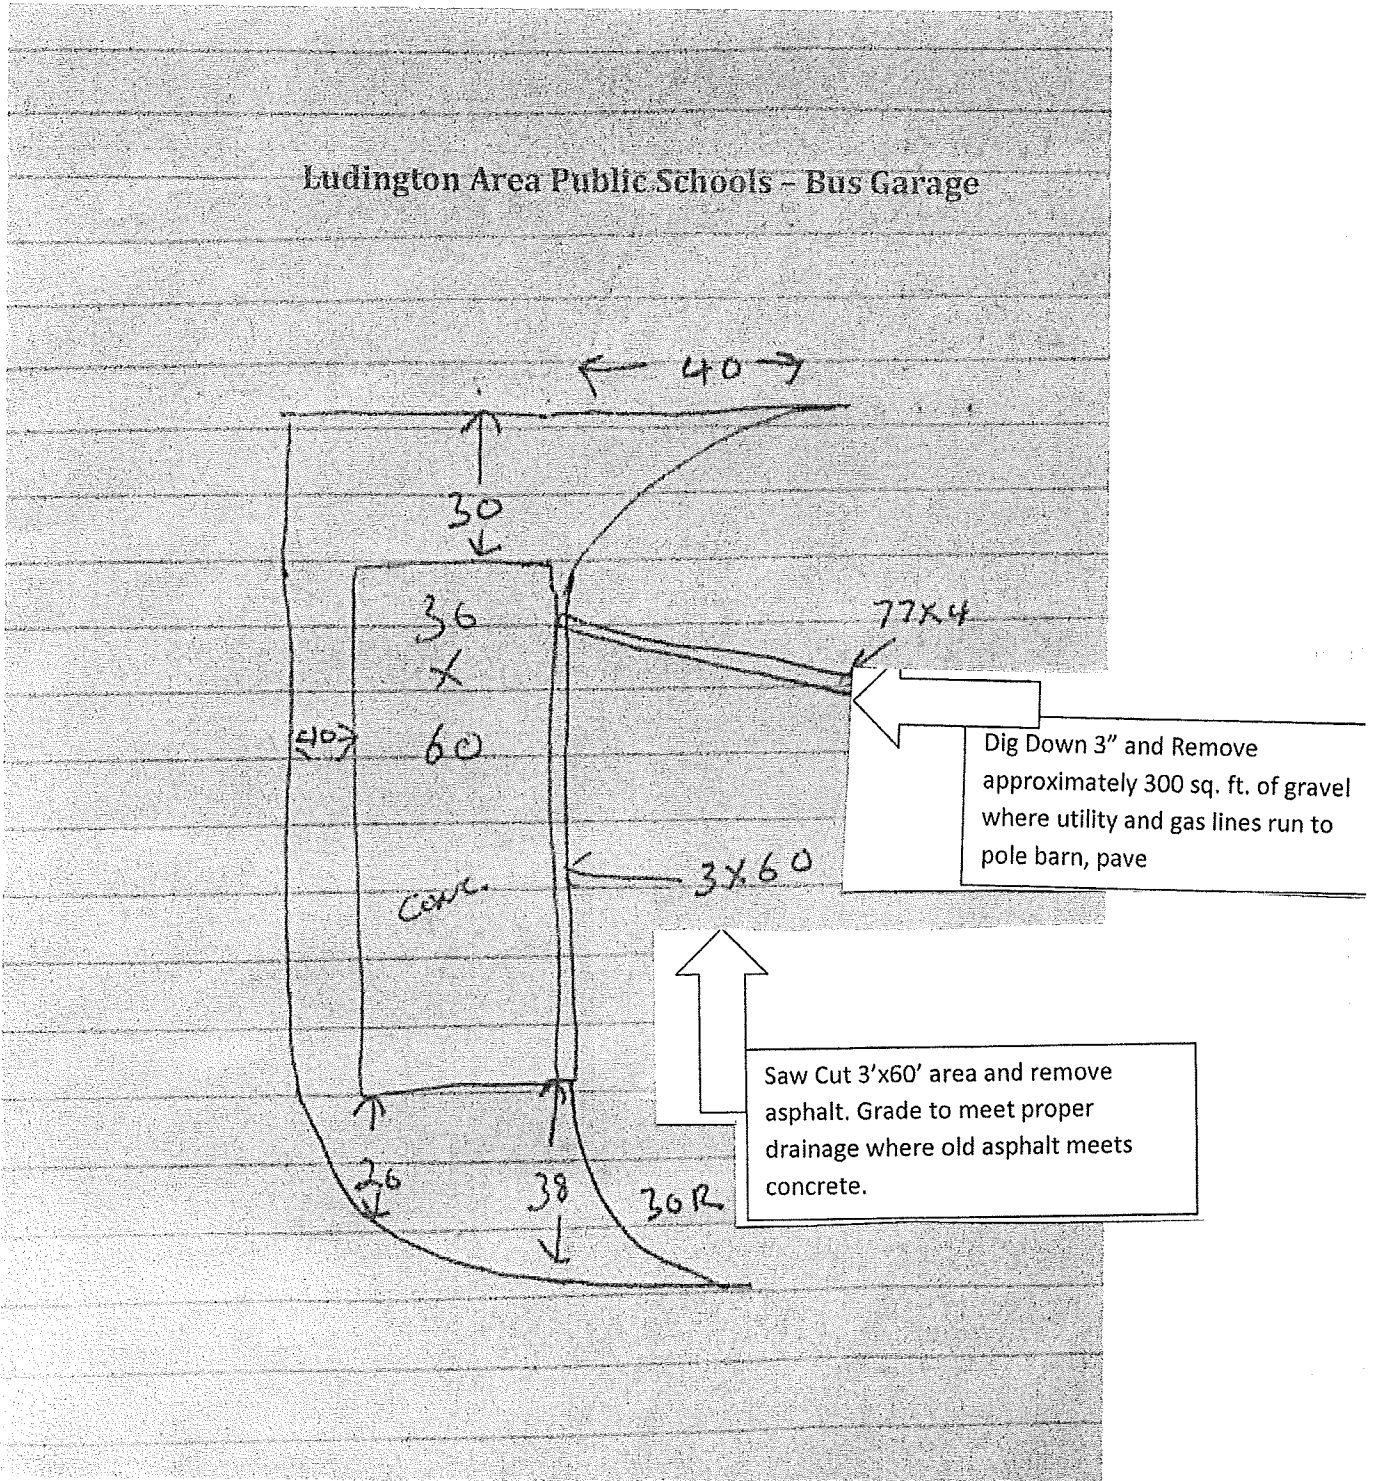 Ludington Area Public Schools – Bus Garage
40
30
36
X
60
77X4
40
Dig Down 3” and Remove
approximately 300 sq. ft. of gravel
where utility and gas lines run to
pole barn, pave
3X60
conc.
Saw Cut 3’x60’ area and remove
asphalt. Grade to meet proper
drainage where old asphalt meets
concrete.
26
38
30R